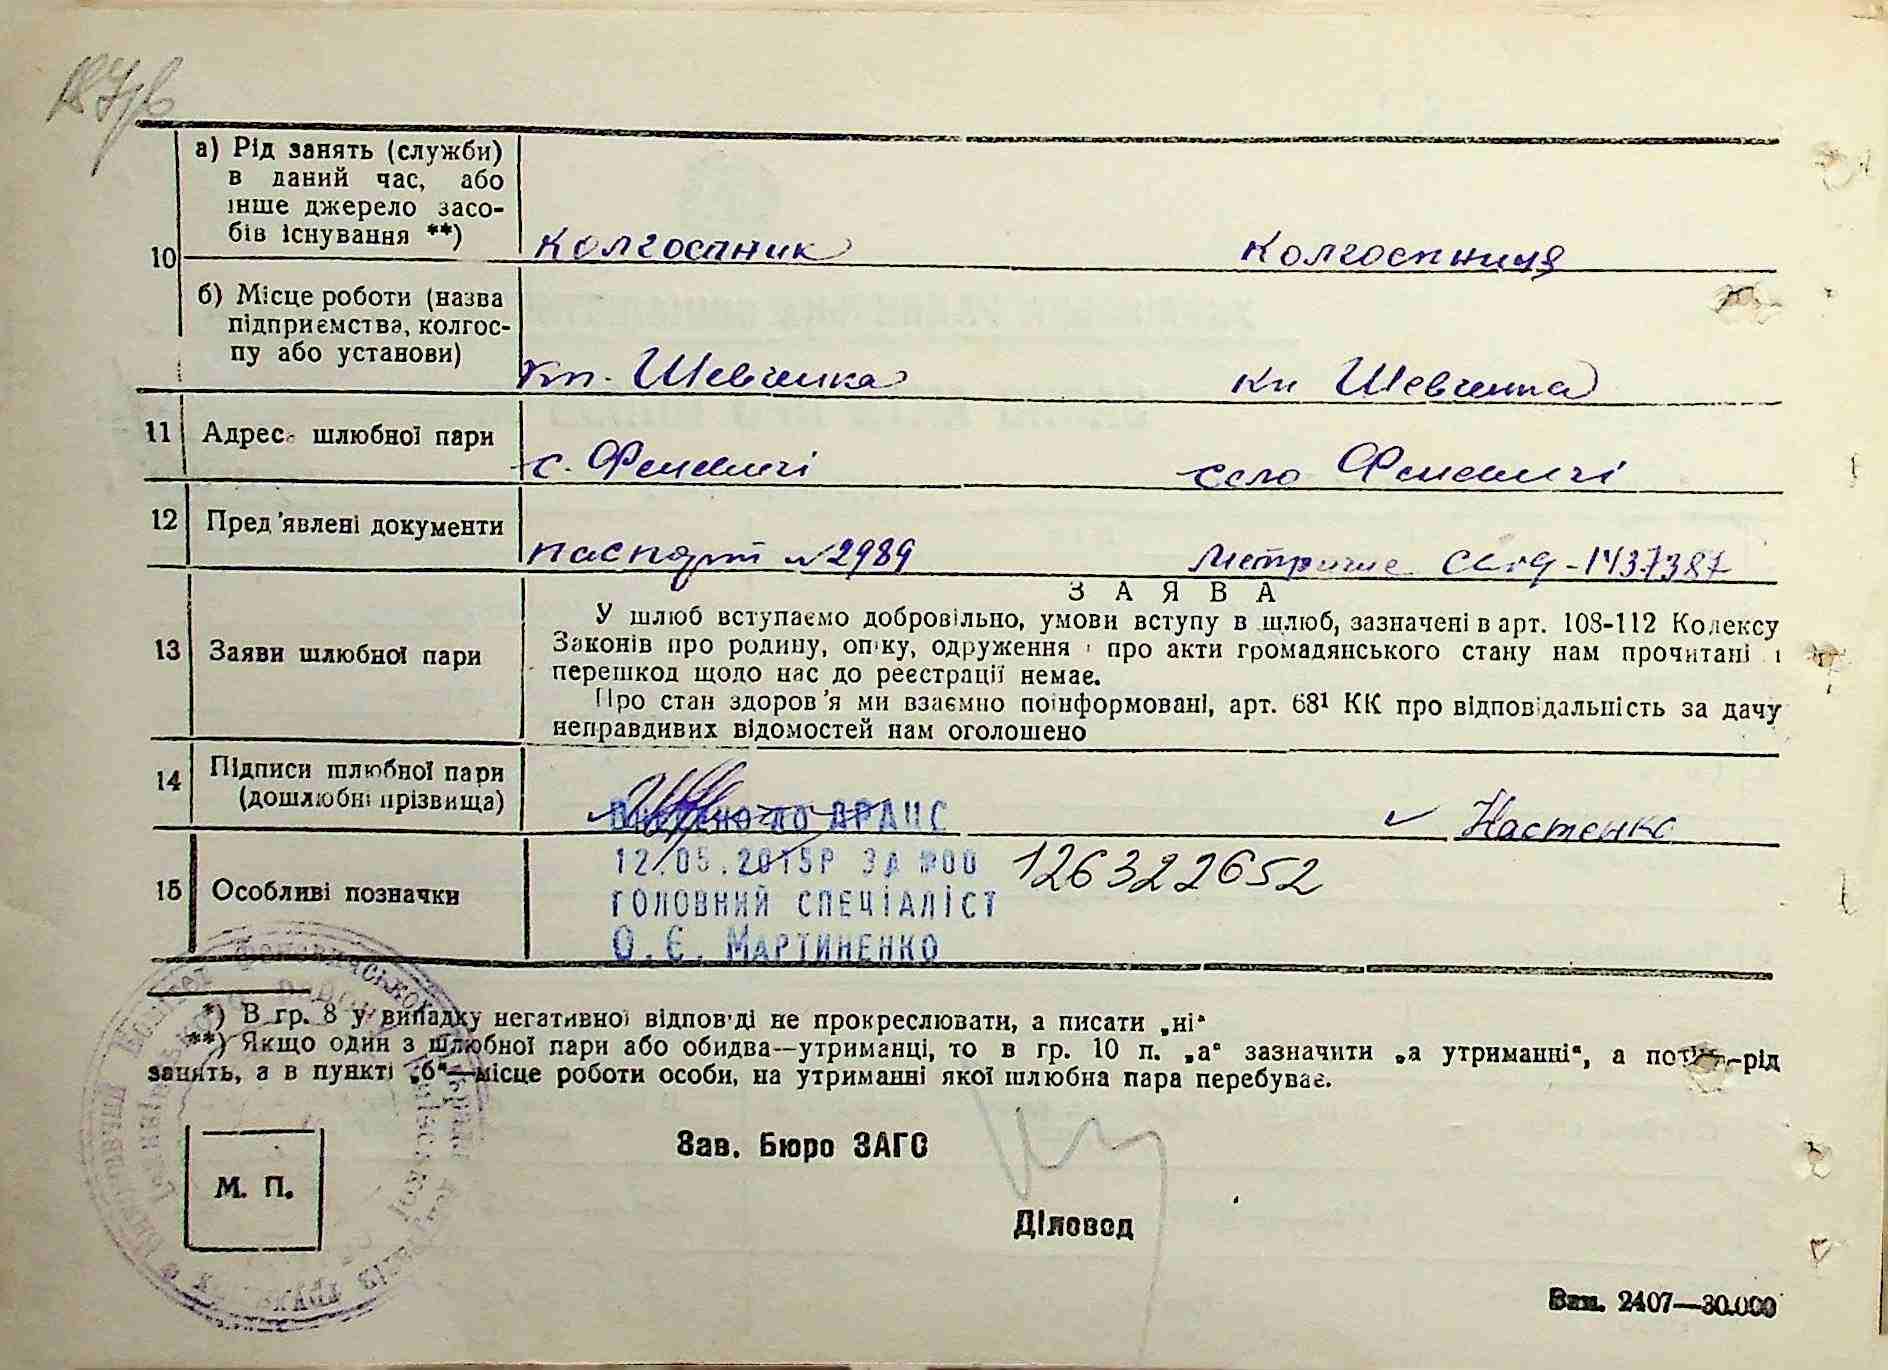 а) Рід занять (служби)
в даний час, або
інше джерело засо-
бів існування **)
Колгоспник Колгоспниця
10
б) Місце роботи (назва
підприємства, колгос-
пу або установи)
кп. Шевченка кп Шевченка
11 Адреса шлюбної пари
с. Феневичі село Феневичі
12 Пред'явлені документи
паспорт №2989 Метричне 1437387
З А Я В А
У шлюб вступаємо добровільно, умови вступу в шлюб, зазначені в арт. 108-112 Колексу
13 Заяви шлюбної пари
Законів про родину, опіку, одруження і про акти громадянського стану нам прочитані і
перешкод щодо нас до реєстрації немає.
Про стан здоров'я ми взаємно поінформовані, арт. 68¹ КК про відповідальність за дачу
неправдивих відомостей нам оголошено
14 Підписи шлюбної пари
(дошлюбні прізвища)
Внесено до ДРАЦС Настенко
12.05.2015р за №00 126322652
15 Особливі позначки
головний спеціаліст
О.Є. Мартиненко
*) В гр. 8 у випадку негативної відповіді не прокреслювати, а писати „ні“
**) Якщо один з шлюбної пари або обидва—утриманці, то в гр. 10 п. „а“ зазначити „а утриманні“, а потім—рід
занять, а в пункті „б“—місце роботи особи, на утриманні якої шлюбна пара перебуває.
Зав. Бюро ЗАГС
М. П.
Діловод
Зам. 2407—30.000